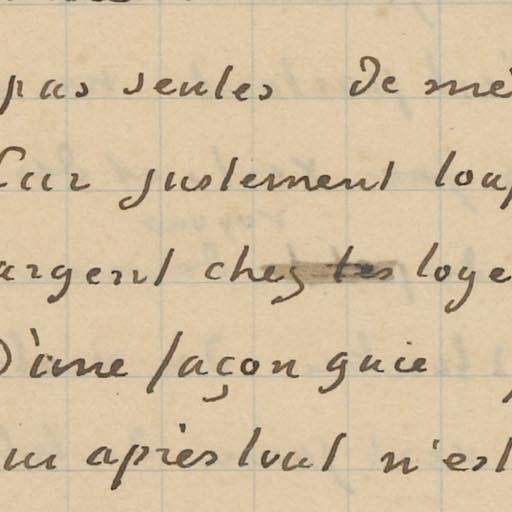 pas seules De mê
Car justement loup
argent chez les loge
D'une façon gaie
ui après tout n'est